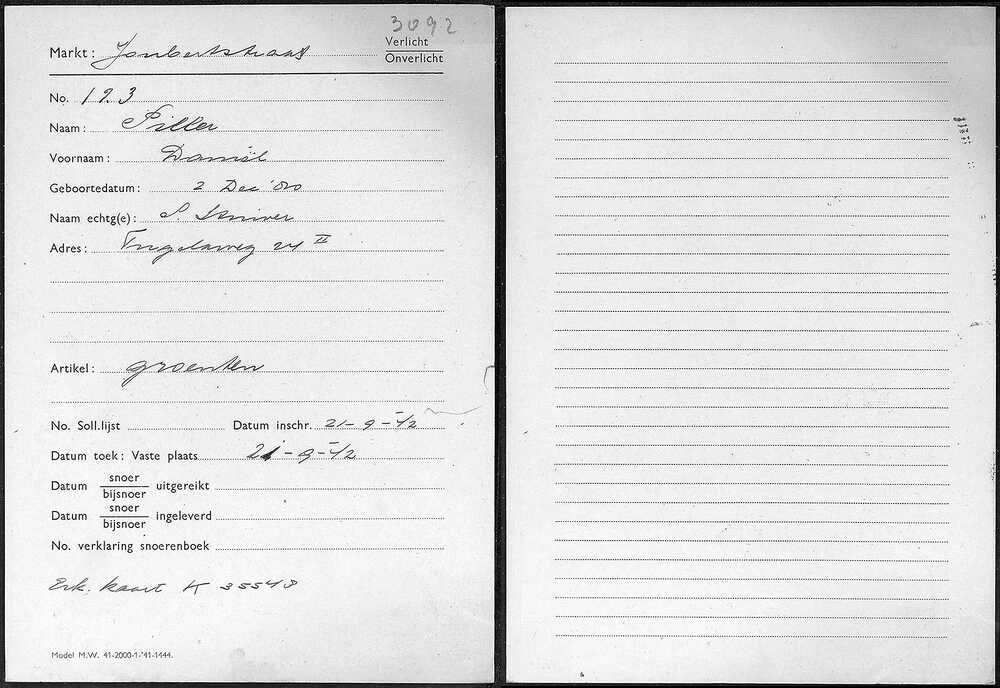 3092
Markt: Joubertstraat
Verlicht
Onverlicht
No. 123
Naam: Piller
Voornaam: Daniël
Geboortedatum: 2 Dec '80
Naam echtg(e): S.
Adres: 24 II
Artikel: groenten
No. Soll.lijst Datum inschr. 21-9-42
Datum toek: Vaste plaats 21-9-42
Datum snoer/bijsnoer uitgereikt
Datum snoer/bijsnoer ingeleverd
No. verklaring snoerenboek
Erk. kaart K 35548
Model M.W. 41-2000-1-'41-1444.